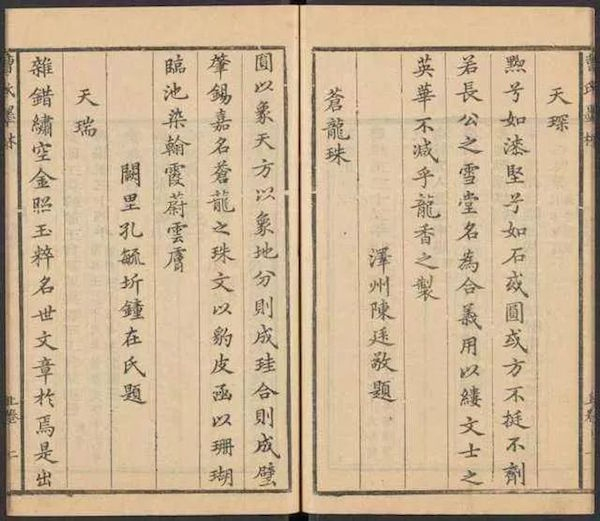 天琛
黝兮如漆堅兮如石或圓或方不挺不劑
若長公之雪堂名為合義用以縷文士之
英華不減乎龍香之製
澤州陳廷敬題
蒼龍珠
曹氏墨林
上卷 一
圓以象天方以象地分則成珪合則成璧
肇錫嘉名蒼龍之珠文以豹皮函以珊瑚
臨池染翰霞蔚雲膚
闕里孔毓圻鐘在氏題
天瑞
雜錯繡空金照玉粹名世文章於焉是出
曹氏墨林
上卷 二